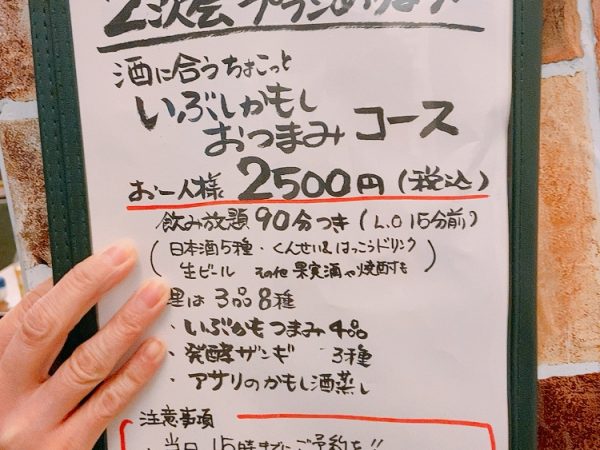 2次会プランあります!
酒に合うちょこっと
いぶしかもし
おつまみコース
お一人様 2500円(税込)
飲み放題90分つき(L.O 15分前)
(日本酒5種・くんせい&はっこうドリンク
生ビール その他果実酒や焼酎も)
理は3品8種
・いぶかもつまみ4品
・発酵ザンギ 3種
・アサリのかもし酒蒸し
注意事項
・当日15時までにご予約を!!